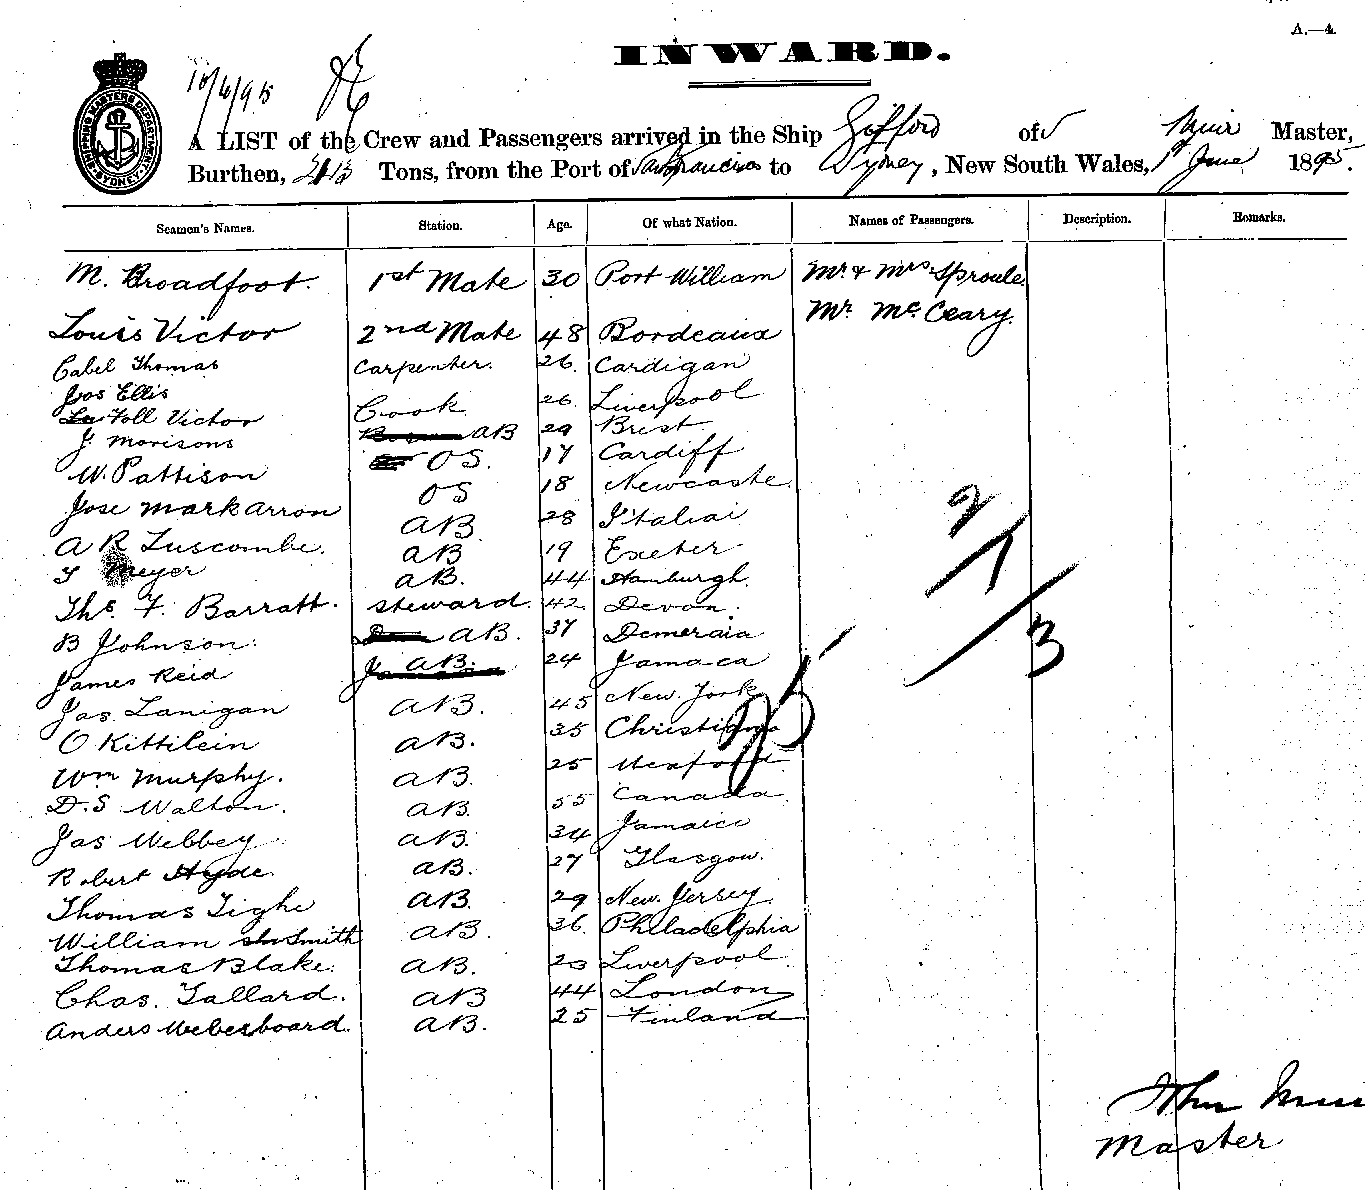 A.—4.
INWARD.
10/6/95
SHIPPING MASTERS DEPARTMENT SYDNEY
A LIST of the Crew and Passengers arrived in the Ship Gifford of Muir Master,
Burthen, 2113 Tons, from the Port of San Francisco to Sydney, New South Wales, 1st June 1895.
Seamen's Names. Station. Age. Of what Nation. Names of Passengers. Description. Remarks.
M. Broadfoot. 1st Mate 30 Port William Mr. & Mrs. Sproule
Louis Victor 2nd Mate 48 Bordeaux Mr. McCeary.
Cabel Thomas Carpenter. 26. Cardigan
Jos Ellis Cook 26 Liverpool
Le Foll Victor AB 29 Brest
J. Morisons OS. 17 Cardiff
W. Pattison OS 18 Newcastle
Jose Markarron AB 28 Italiai
A R Luscombe. AB 19 Exeter
Meyer AB. 44 Hamburgh.
Ths. F. Barratt. Steward. 42 Devon.
B Johnson. AB. 37 Demeraia
James Reid AB. 24 Jamaca
Jas. Lanigan AB. 45 New. York
O Kittilein AB. 35 Christiana
Wm Murphy. AB. 25 Wexford
D. S Walton. AB. 55 Canada
Jas Webbey AB. 34 Jamaica
Robert Hyde. AB. 27 Glasgow.
Thomas Tighe AB. 29 New. Jersey.
William Smith AB. 36 Philadelphia
Thomas Blake. AB. 23 Liverpool
Chas. Tallard. AB 44 London
Anders Weberboard. AB. 25 Finland
2/1/3
25
John Muir
Master